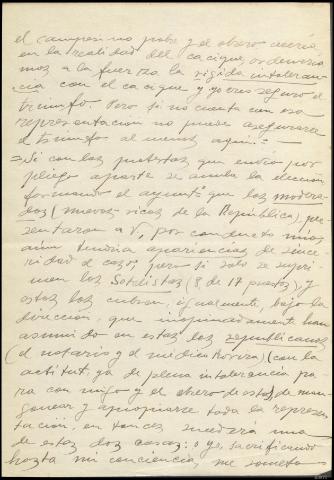 el campesino pobre y el obrero creería
en la realidad del cacique,
mos a la fuerza la rigida intoleran-
cia con el cacique y yo creo seguro el
triunfo. Pero si no cuenta con esa
representacion no puede asegurarse
el triunfo al menos aqui. =
= Si con las protestas que envio por
pliego aparte se anula la eleccion
formando el ayuntº que los modera-
dos (nuevos ricos de la República), pre-
sentaron a V, por conducto mio,
aun tendria apariencias de since-
ridad el caso; pero si solo se supri-
men los Sotelistas (8 de 17 puestos), y
estos los cubren, igualmente, bajo la
direccion, que inopinadamente han
asumido en estas los republicanos
(el notario y el médico Rovira) (con la
actitud, ya de plena intolerancia pa
ra conmigo y el obrero de estos) de man-
gonear y apropiarse toda la represen
tacion, entonces sucederá una
de estas dos cosas: o yo, sacrificando
hasta mi conciencia, me someto